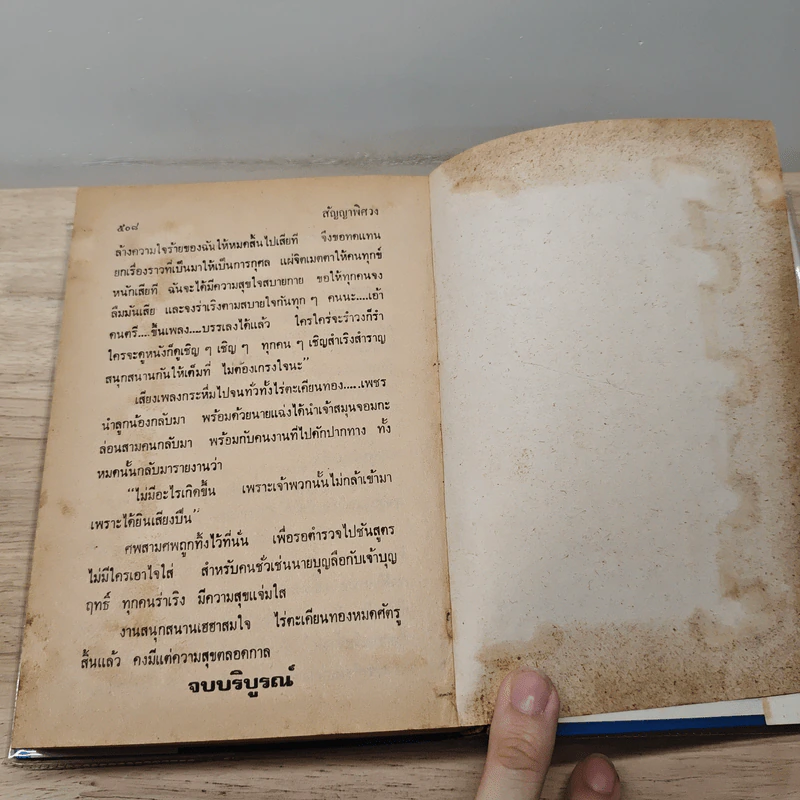 ๕๐๘ สัญญาพิศวง
ล้างความใจร้ายของฉันให้หมดสิ้นไปเสียที จึงขอทดแทน
ยกเรื่องราวที่เป็นมาให้เป็นการกุศล แผ่จิตเมตตาให้คนทุกข์
หนักเสียที ฉันจะได้มีความสุขใจสบายกาย ขอให้ทุกคนจง
ลืมมันเสีย และจงร่าเริงตามสบายใจกันทุก ๆ คนนะ....เอ้า
ดนตรี....ขึ้นเพลง....บรรเลงได้แล้ว ใครใคร่จะรำวงก็รำ
ใครจะดูหนังก็ดูเชิญ ๆ เชิญ ๆ ทุกคน ๆ เชิญสำเริงสำราญ
สนุกสนานกันให้เต็มที่ ไม่ต้องเกรงใจนะ”
เสียงเพลงกระหึ่มไปจนทั่วทั้งไร่ตะเคียนทอง.....เพชร
นำลูกน้องกลับมา พร้อมด้วยนายแฉ่งได้นำเจ้าสมุนจอมกะ
ล่อนสามคนกลับมา พร้อมกับคนงานที่ไปดักปากทาง ทั้ง
หมดนั้นกลับมารายงานว่า
“ไม่มีอะไรเกิดขึ้น เพราะเจ้าพวกนั้นไม่กล้าเข้ามา
เพราะได้ยินเสียงปืน”
ศพสามศพถูกทิ้งไว้ที่นั่น เพื่อรอตำรวจไปชันสูตร
ไม่มีใครเอาใจใส่ สำหรับคนชั่วเช่นนายบุญลือกับเจ้าบุญ
ฤทธิ์ ทุกคนร่าเริง มีความสุขแจ่มใส
งานสนุกสนานเฮฮาสมใจ ไร่ตะเคียนทองหมดศัตรู
สิ้นแล้ว คงมีแต่ความสุขตลอดกาล
จบบริบูรณ์